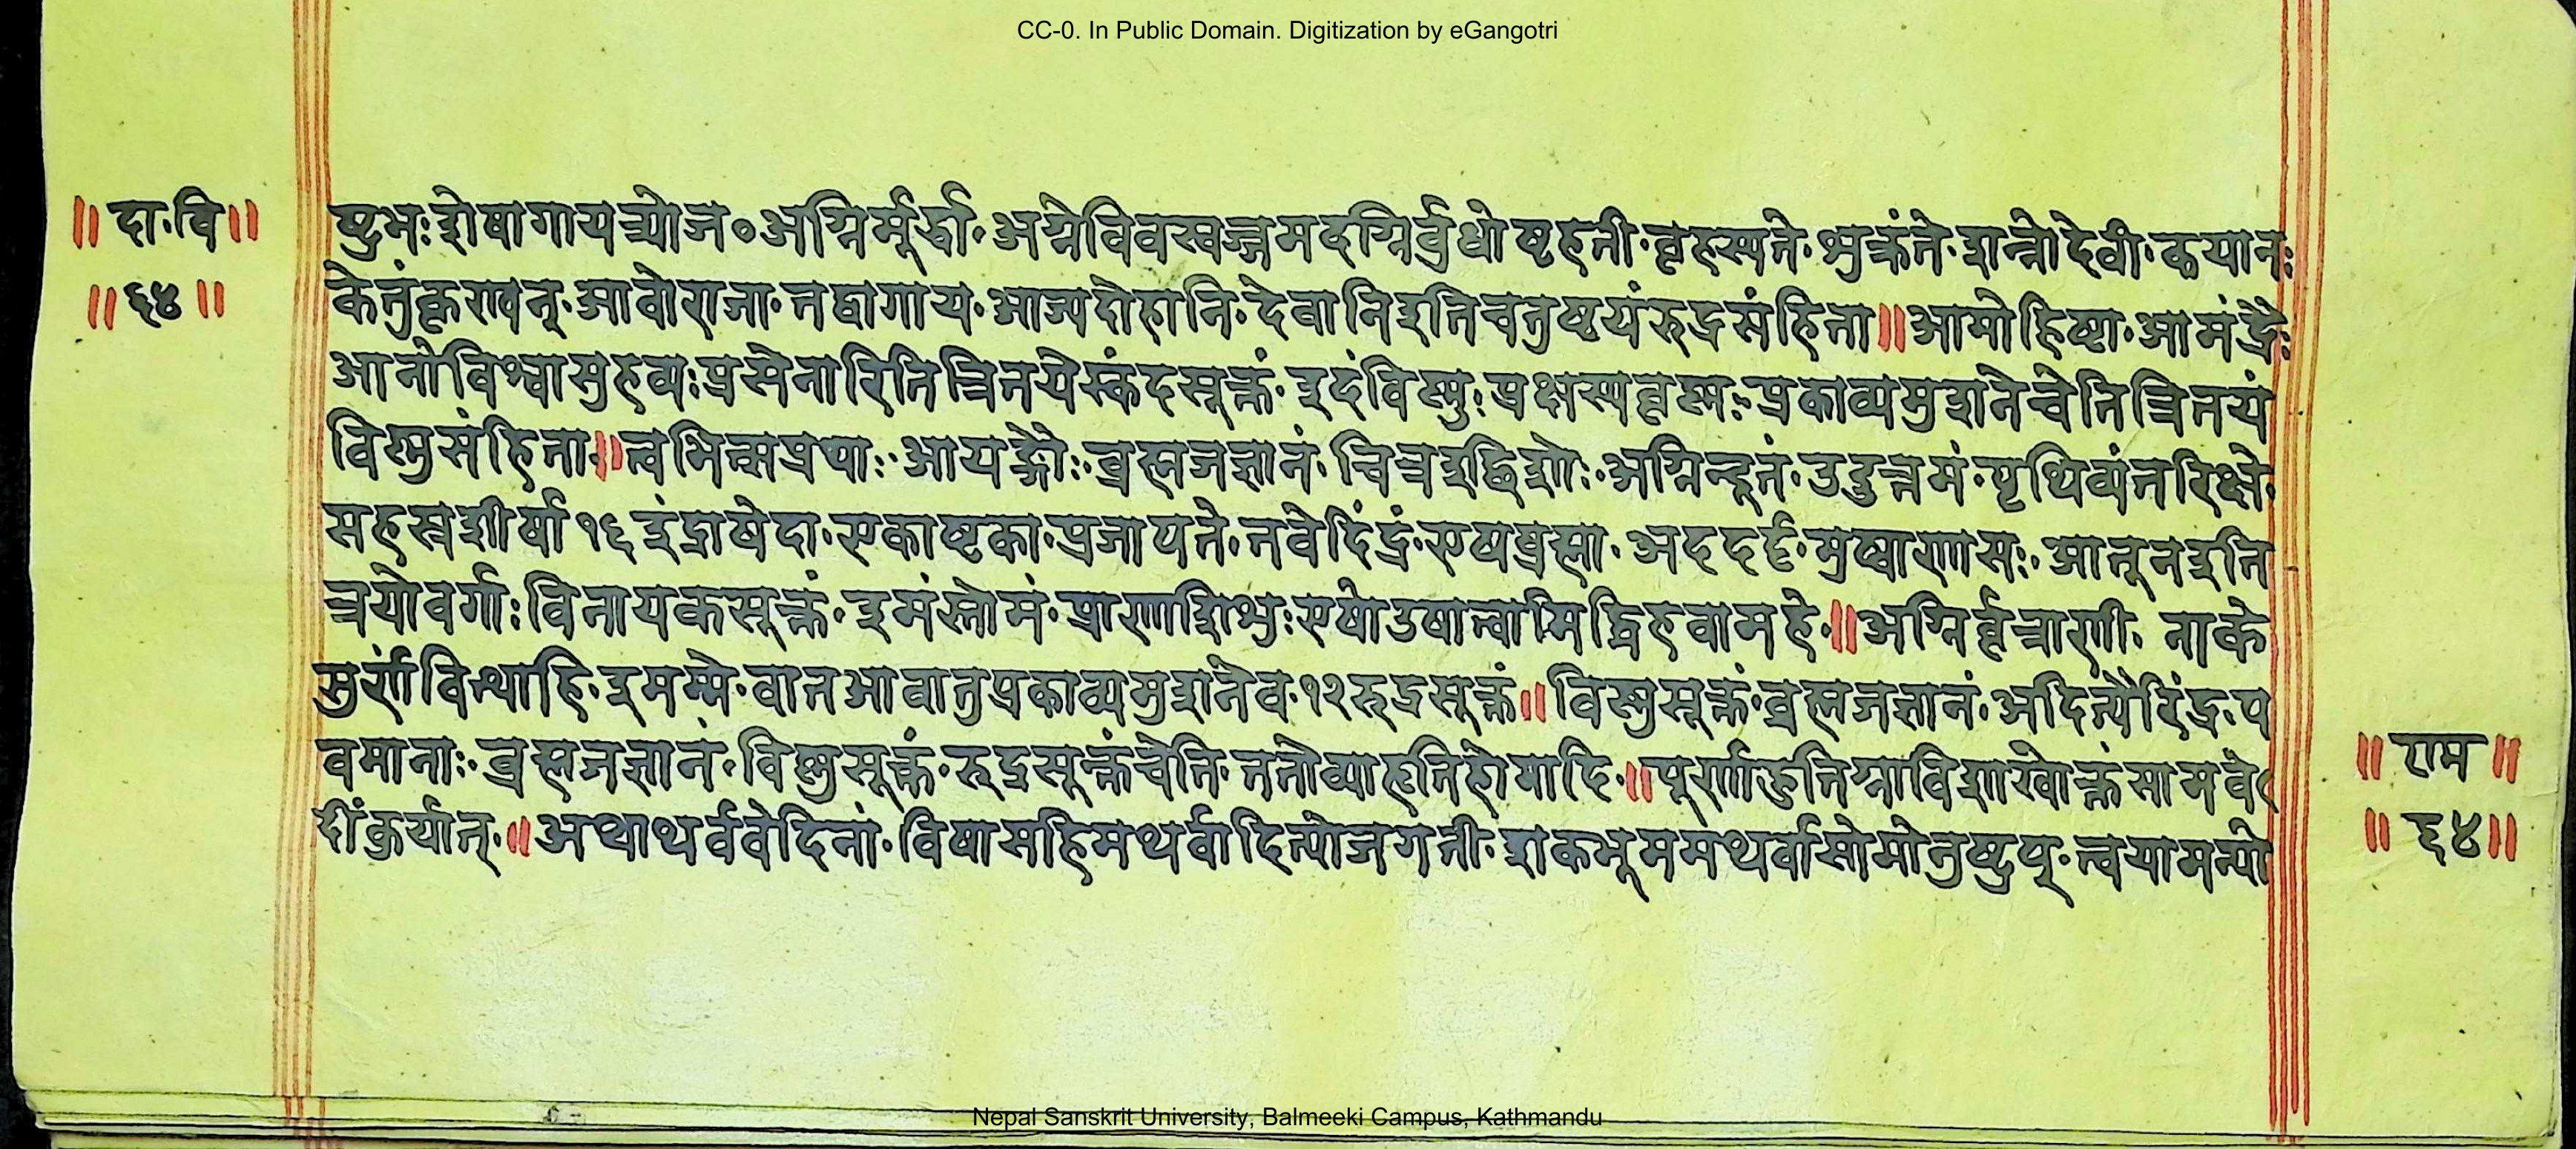 CC-0. In Public Domain. Digitization by eGangotri
॥ दा·वि॥
॥६४॥
ष्टुभःशेषागायत्र्योज०अग्निर्मूर्द्धा·अग्नेविवस्वज्जमदग्निर्वुधोष्बृहती·बृहस्पते·शुक्रंते·शन्नोदेवी·कयानः
केतुंकृण्वन्·आवोराजा·तद्वागाय·आज्यदोहानि·देवानिइतिचतुष्टयंरुद्रसंहिता॥आपोहिष्ठा·आमंद्रैः
आनोविश्वासुहव्यःप्रसेनारितित्रितयेस्कंदसूक्तं·इदंविष्णुःप्रक्षस्यवृष्णः·प्रकाव्यमुशनेचेतित्रितयं
विष्णुसंहिता॥त्वमित्सप्रथाः·आयङ्गौः·ब्रह्मजज्ञानं·चित्रइछिशोः·अग्निन्दूतं·उदुत्तमं·पृथिव्यंतरिक्षे·
सहस्रशीर्षा१६इंद्रायेदा·एकाष्टका·प्रजापते·नवेदिंद्रं·एषब्रह्मा·अदर्दृ·सुष्वाणासः·आतूनइति
त्रयोवर्गाःविनायकसूक्तं·इमंस्तोमं·प्राणाशिशुःएषोउषात्वामिद्धिहवामहे·॥अग्निर्वृत्राणी· नाके
सुर्णंविश्वाहि·इममेव·वातआवातुप्रकाव्यमुशनेव·१२रुद्रसूक्तं॥विष्णुसूक्तं·ब्रह्मजज्ञानं·अदित्यैरिंद्रःप
वमानाः·ब्रह्मजज्ञानं·विष्णुसूक्तं·रुद्रसूक्तंचेति·ततोव्याहृतिहोमादि·॥पूर्णाहुतिश्राविशाखोक्तंसामवे
दीकुर्यात्·॥अथाथर्ववेदिनां·विषासहिमथर्वादित्योजगती·शकधूममथर्वासोमोनुष्टुप्·त्वयामन्यो
॥ राम ॥
॥ ६४॥
Nepal Sanskrit University, Balmeeki Campus, Kathmandu